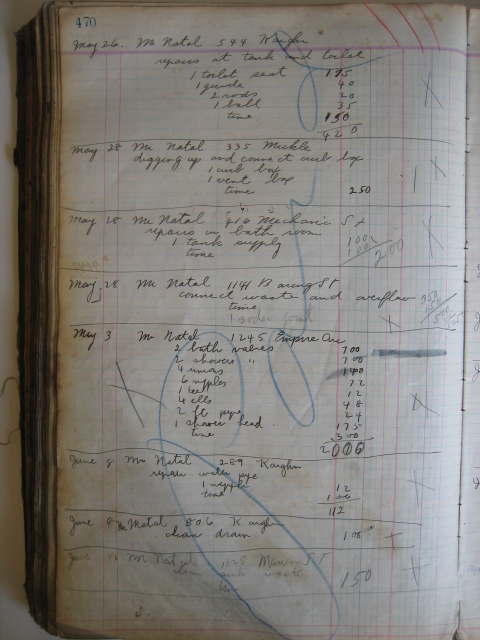 470
May 26. Mr Natal 544 Kaighn
repairs at tank and toilet
1 toilet seat 175
1 guide 40
2 rods 20
1 ball 35
time 150
420
May 28 Mr Natal 335 Mickle
digging up and connect curb box
1 curb box
1 vent box
time 250
May 28 Mr Natal 416 Mechanic St
repairs in bath room
1 tank supply 100
time 100 200
May 28 Mr Natal 1141 Baring St
connect waste and overflow
time
1
May 3 Mr Natal 1245 Empire Ave
2 bath valves 700
2 showers " 700
4 unions
6 nipples 72
1 tee 12
4 ells 48
2 ft pipe 24
1 shower head 175
time 300
2000
June 8 Mr Natal 289 Kaighn
repair water pipe
1 nipple 12
time 100
112
June 8 Mr Natal 806 Kaighn
clean drain 100
June Mr Natal 1125 St
150